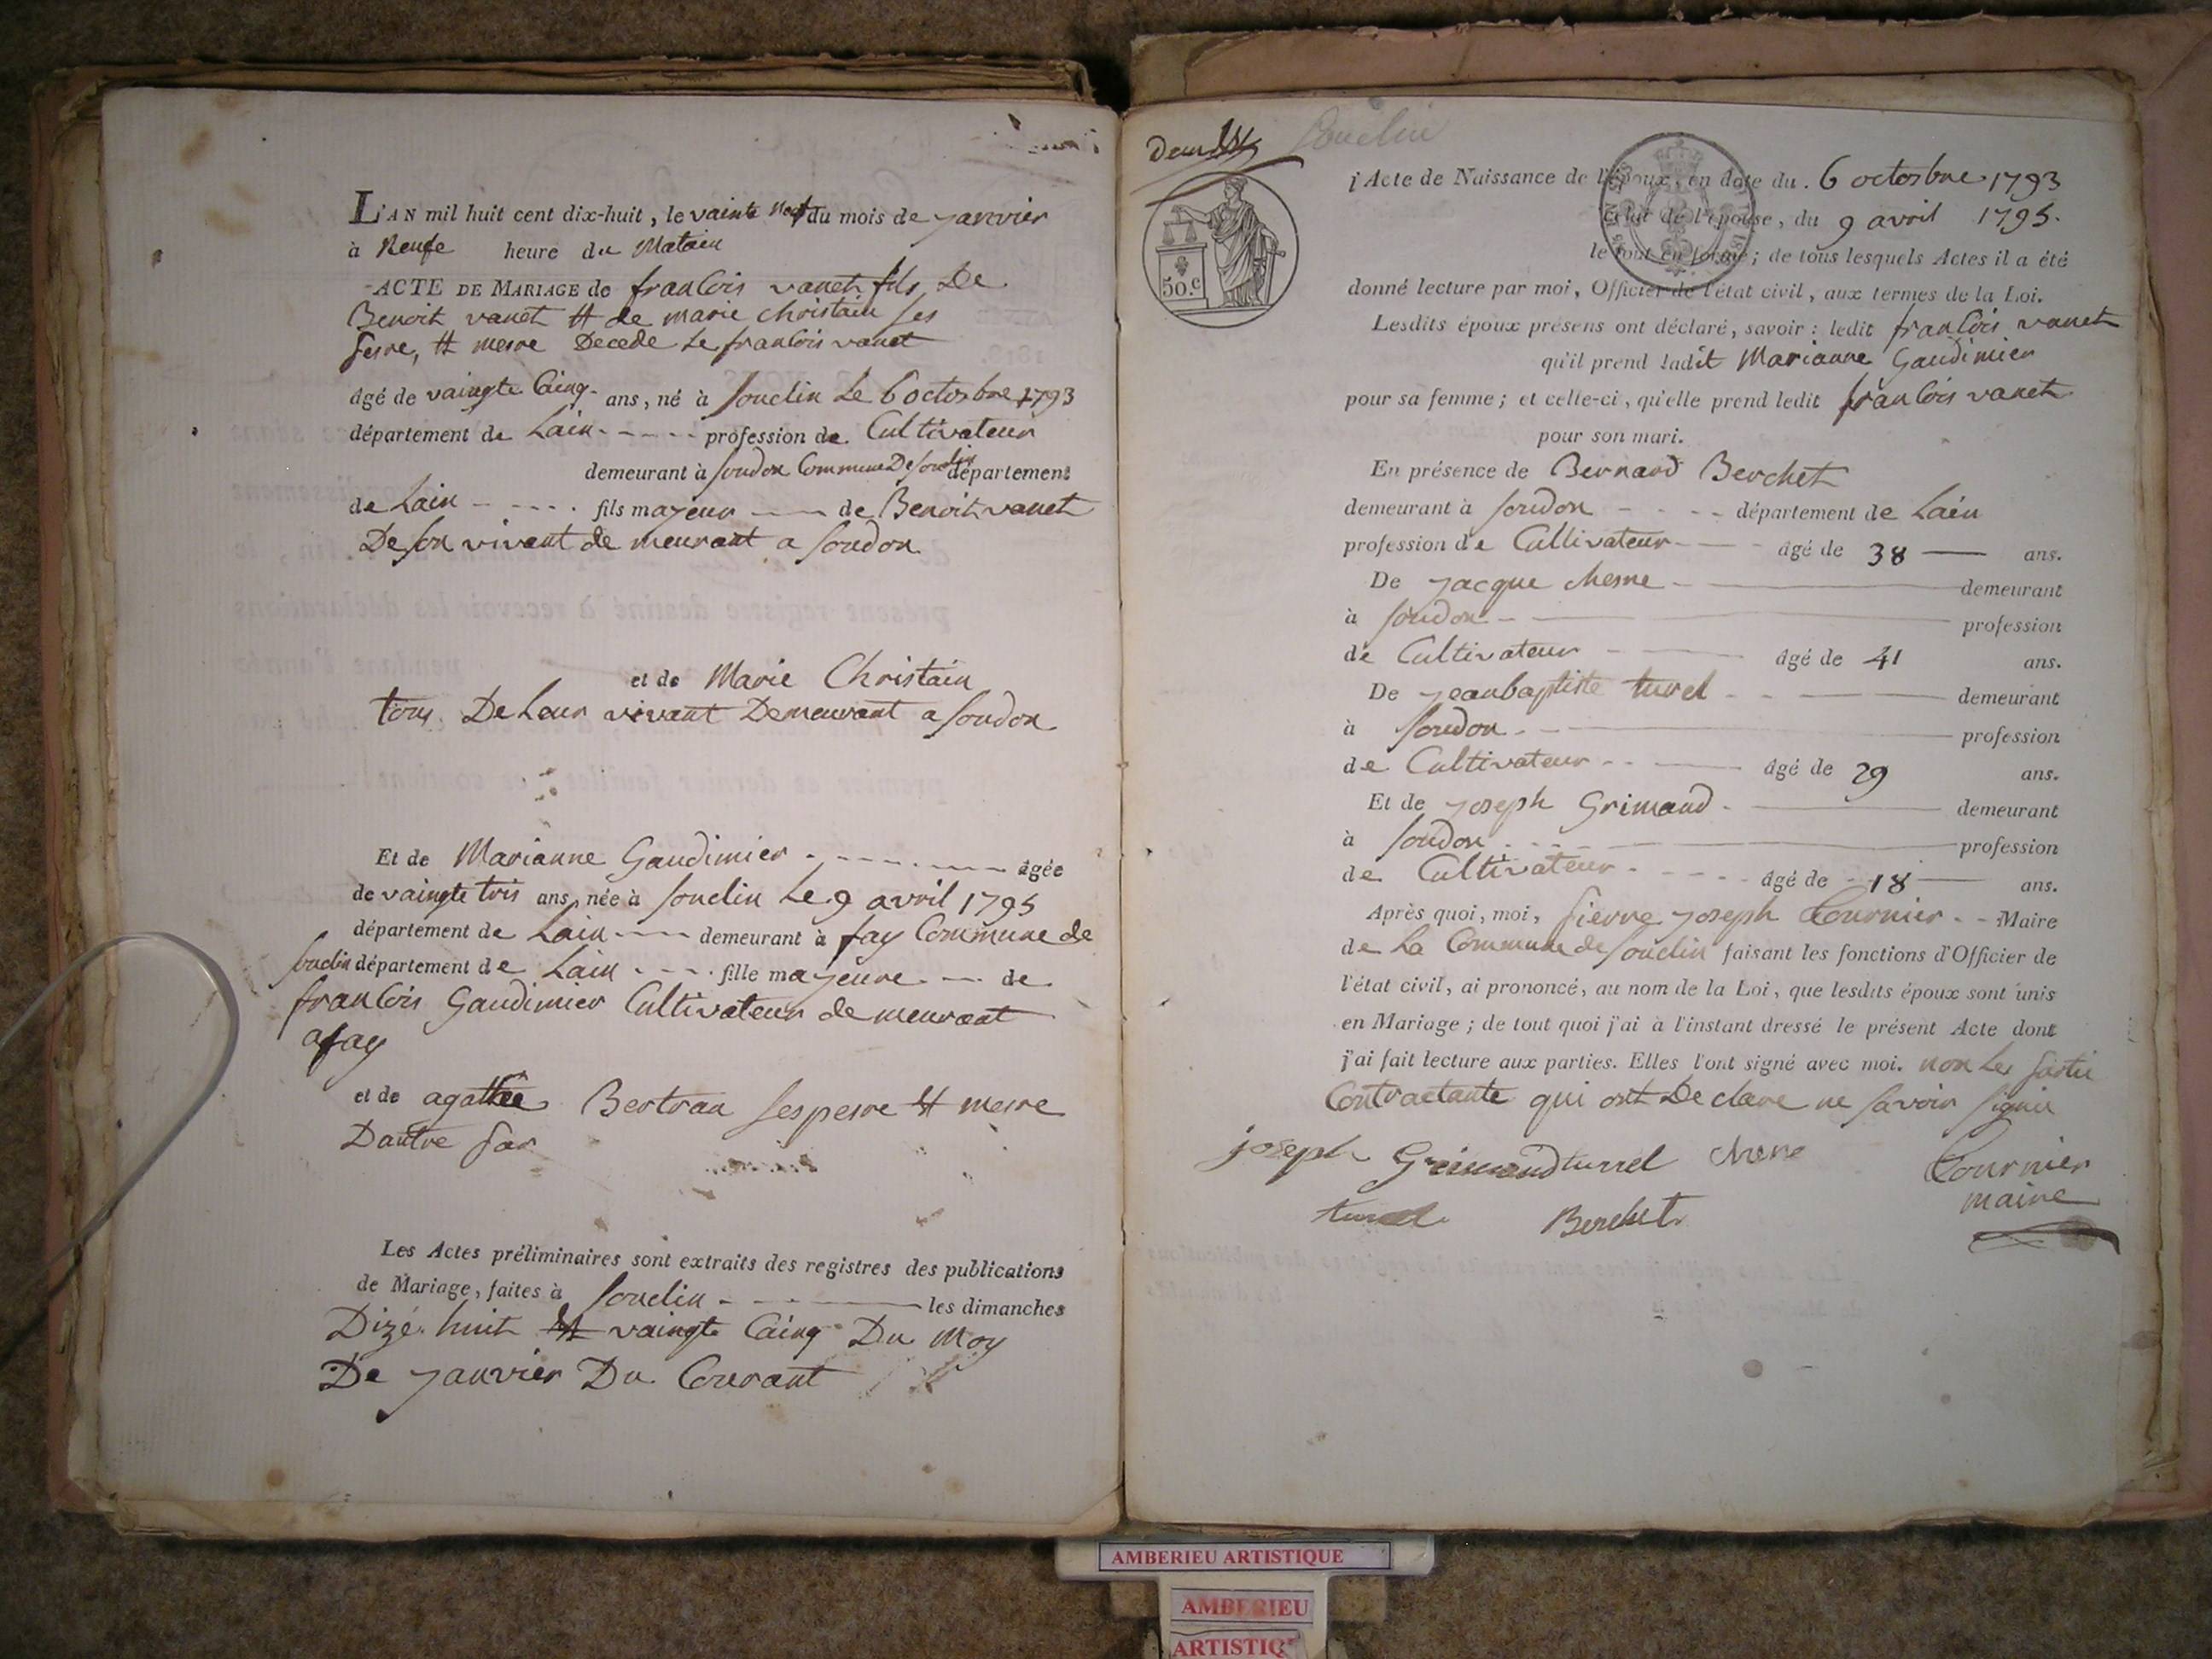 L'AN mil huit cent dix-huit, le vainte neuf du mois de janvier
à neufe heure du Matain
ACTE DE MARIAGE de franCois vanet fils De
Benoit vanet et de marie christain ses
perre, et merre Decede Le franCois vanet
âgé de vaingte Cainq ans, né à Souclin Le 6 octosbre 1793
département de Lain profession de Cultivateur
demeurant à Soudon Commune De Souclin département
de Lain fils majeur de Benoit vanet
De Son vivant de meurant a Soudon
et de Marie Christain
tous De Leur vivant Demeurant a Soudon
Et de Marianne Gaudimier âgée
de vaingte trois ans, née à Souclin Le 9 avril 1795
département de Lain demeurant à fay Commune de
Souclin département de Lain fille majeure de
franCois Gaudimier Cultivateur de meurant
a fay
et de agathe Bertran Ses perre et merre
Dautre par
Les Actes préliminaires sont extraits des registres des publications
de Mariage, faites à Souclin les dimanches
Dize huit et vaingte Cainq Du Moy
De janvier Du Courant
Deux
Souclin
1 Acte de Naissance de l'époux, en date du 6 octosbre 1793
Celui de l'épouse, du 9 avril 1795.
le tout en forme; de tous lesquels Actes il a été
50.c
donné lecture par moi, Officier de l'état civil, aux termes de la Loi.
Lesdits époux présens ont déclaré, savoir : ledit franCois vanet
qu'il prend ladit Marianne Gaudimier
pour sa femme; et celle-ci, qu'elle prend ledit franCois vanet
pour son mari.
En présence de Bernard Berchet
demeurant à Soudon département de Lain
profession de Cultivateur âgé de 38 ans.
De Jacque chesne demeurant
à Soudon profession
de Cultivateur âgé de 41 ans.
De jeanbaptiste turel demeurant
à Soudon profession
de Cultivateur âgé de 29 ans.
Et de joseph Grimaud demeurant
à Soudon profession
de Cultivateur âgé de 18 ans.
Après quoi, moi, pierre joseph Cournier Maire
de La Commune de Souclin faisant les fonctions d'Officier de
l'état civil, ai prononcé, au nom de la Loi, que lesdits époux sont unis
en Mariage; de tout quoi j'ai à l'instant dressé le présent Acte dont
j'ai fait lecture aux parties. Elles l'ont signé avec moi. non Les partie
Contractante qui ont De clare ne Savoir Signer
joseph Grimaud turrel chene Cournier
turel Berchet maire
AMBERIEU ARTISTIQUE
AMBERIEU
ARTISTIQ